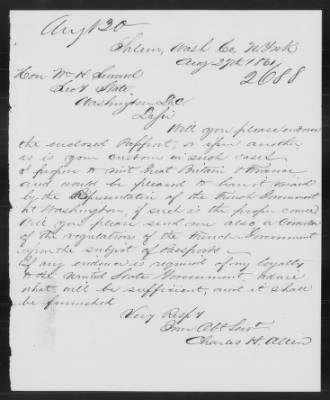 Aug 30
Salem, Wash Co, N York
Aug 27th 1861
2688
Hon Wm H. Seward
Sec of State
Washington D.C.
D Sir
Will you please
the enclosed Passport, or issue another
as is your custom in such cases
I propose to visit Great Britain & France
and would be pleased to have it vised
by the Representative of the French Government
at Washington, if such is the proper course
Will you please send me also a
of the regulations of the French Government
upon the subject of Passports
If any evidence is required of my loyalty
to the United States Government, advise
what will be sufficient, and it shall
be furnished
Very Resp't
Your Obt Servt
Charles H. Allen